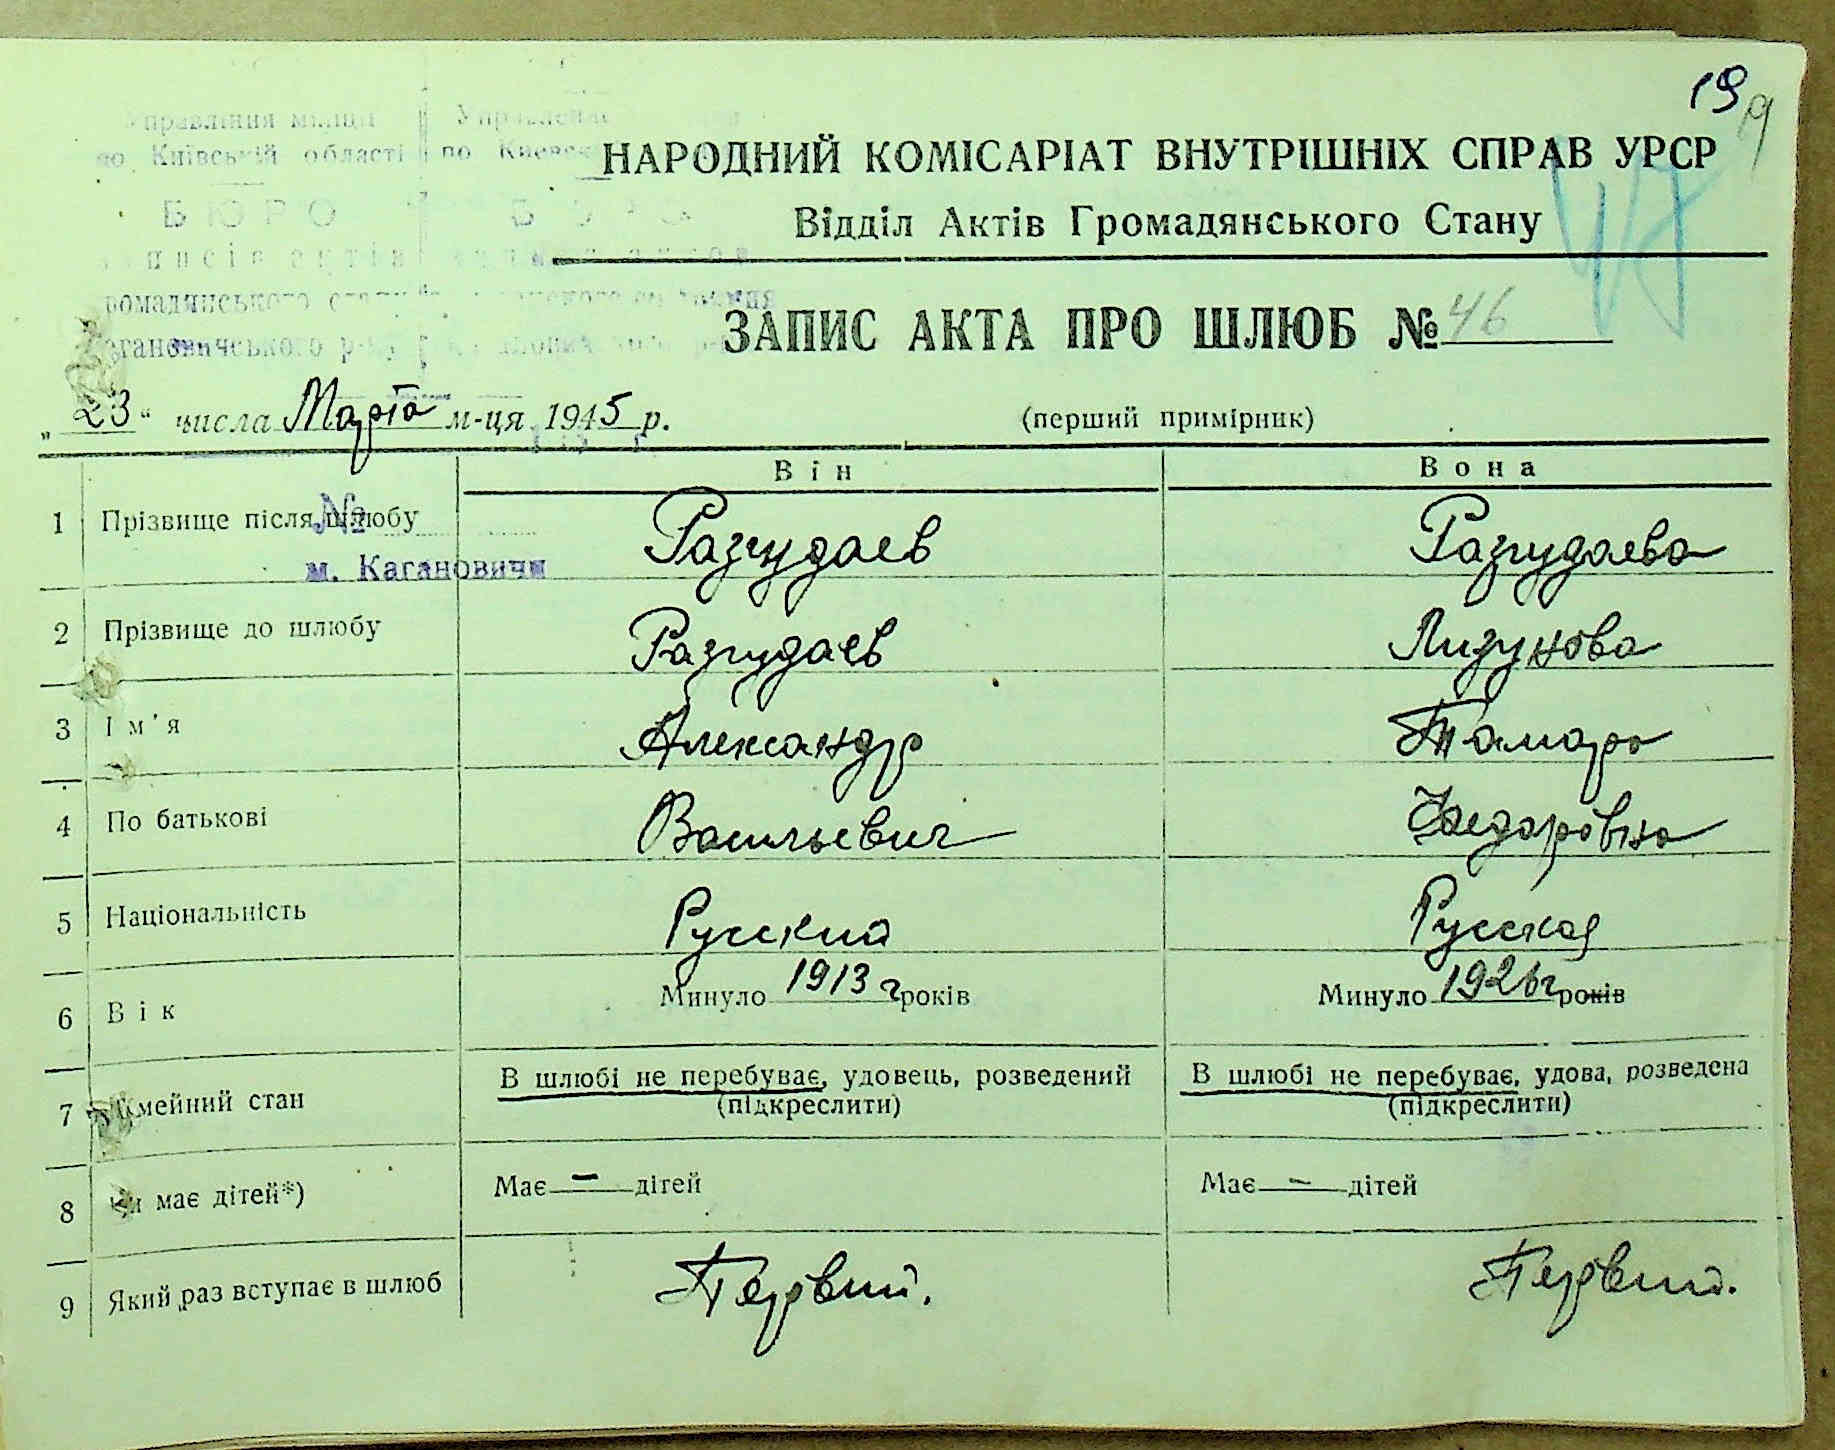 19
9
Управління міліції
по Київській області по Киевск
НАРОДНИЙ КОМІСАРІАТ ВНУТРІШНІХ СПРАВ УРСР
47
БЮРО БЮРО
Відділ Актів Громадянського Стану
записів актів
громадянського стану
Кагановичського р-ну
ЗАПИС АКТА ПРО ШЛЮБ № 46
„23" числа Марта м-ця 1945 р.
(перший примірник)
Він Вона
1 Прізвище після шлюбу Разгудаев Разгудаева
№
м. Кагановичи
2 Прізвище до шлюбу Разгудаев Лизунова
3 Ім'я Александр Тамара
4 По батькові Васильевич Федоровна
5 Національність Русский Русская
6 Вік Минуло 1913 г років Минуло 1926 г років
7 Сімейний стан В шлюбі не перебуває, удовець, розведений В шлюбі не перебуває, удова, розведена
(підкреслити) (підкреслити)
8 Чи має дітей*) Має — дітей Має — дітей
9 Який раз вступає в шлюб Первий. Первий.